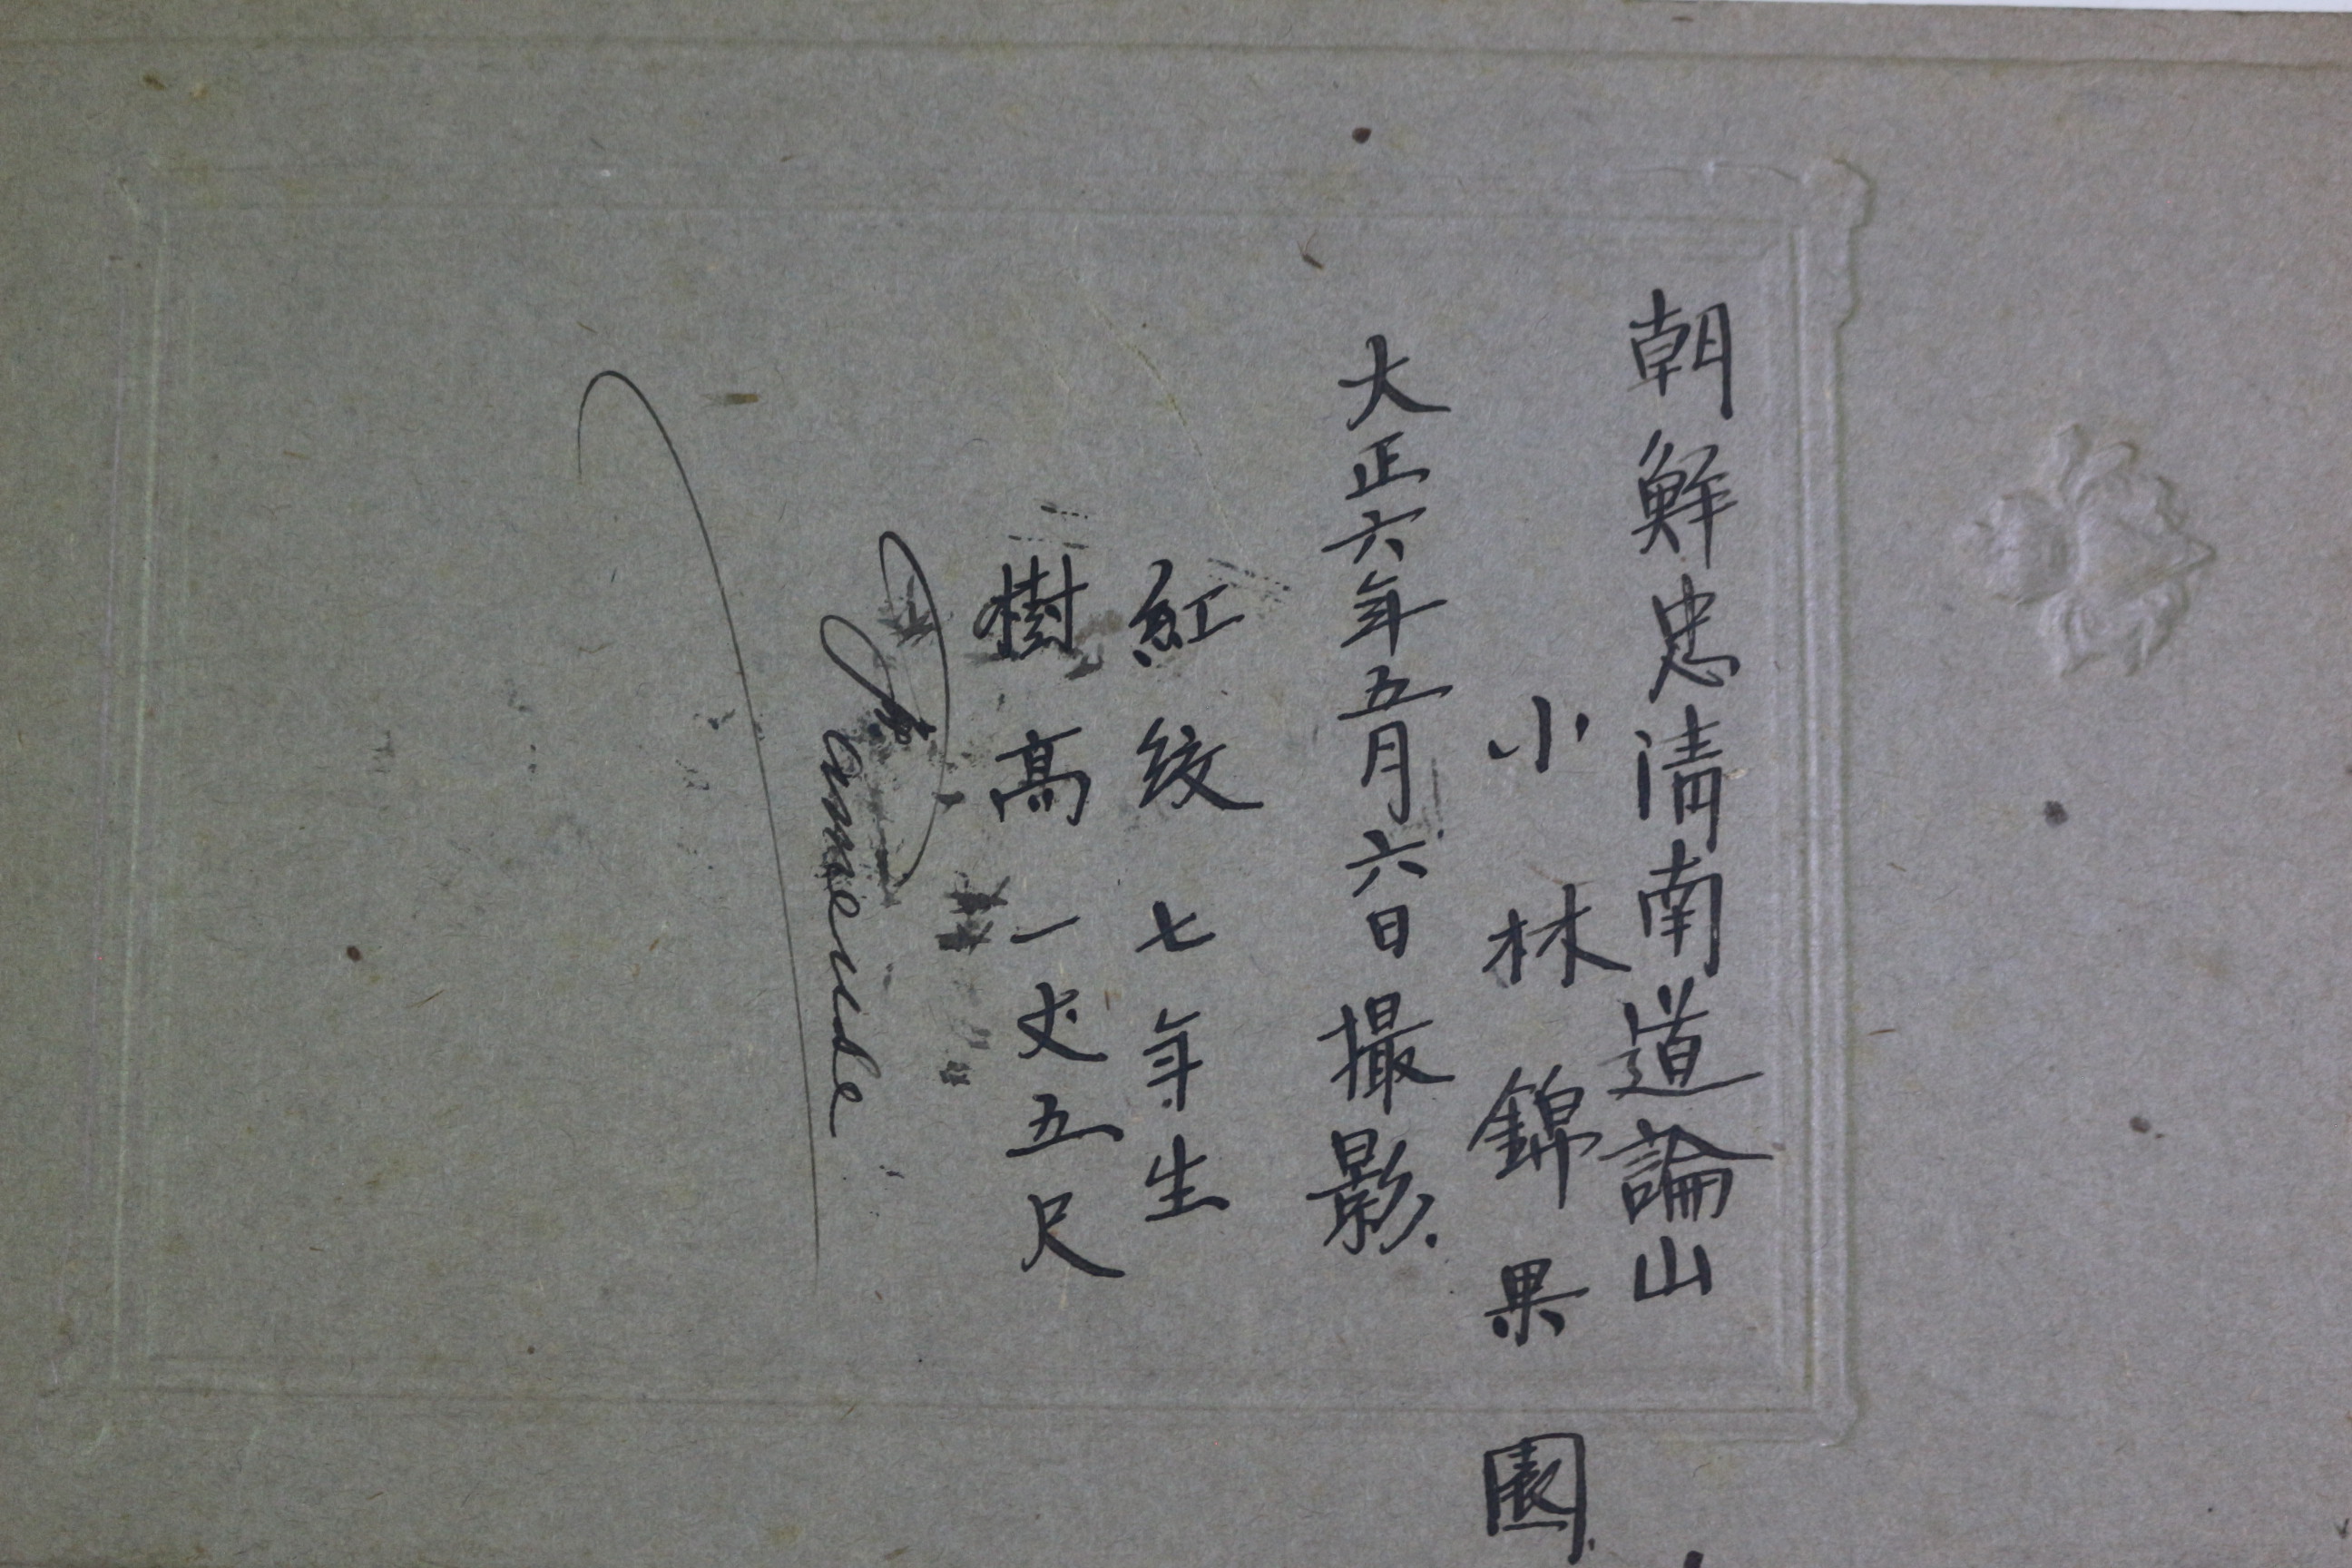 朝鮮忠清南道論山
小林錦果園
大正六年五月六日撮影.
紅絞七年生
樹高一丈五尺
Fameuse